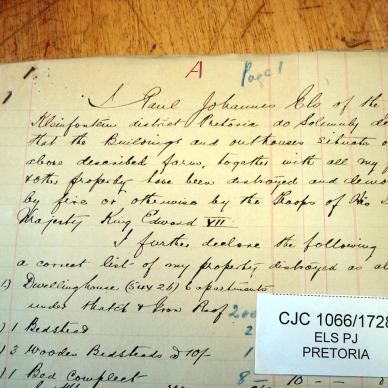 A Page 1
I Paul Johannes Els of the
Kleinfontein district Pretoria do Solemnly de
that the Buildings and outhouses situate o
above described farm, together with all my
& other property have been distroyed and
by fire or otherwise by the Troops of His
Majesty King Edward VII
I further declare the following
a correct list of my property distroyed as a
1) Dwellinghouse (50x26) 6 apartments
under thatch & Iron Roof 200
1) 1 Bedstead 2
1) 3 Wooden Bedsteads @ 10/- 1
1) 1 Bed Compleet 8 10 -
CJC 1066/1728
ELS PJ
PRETORIA